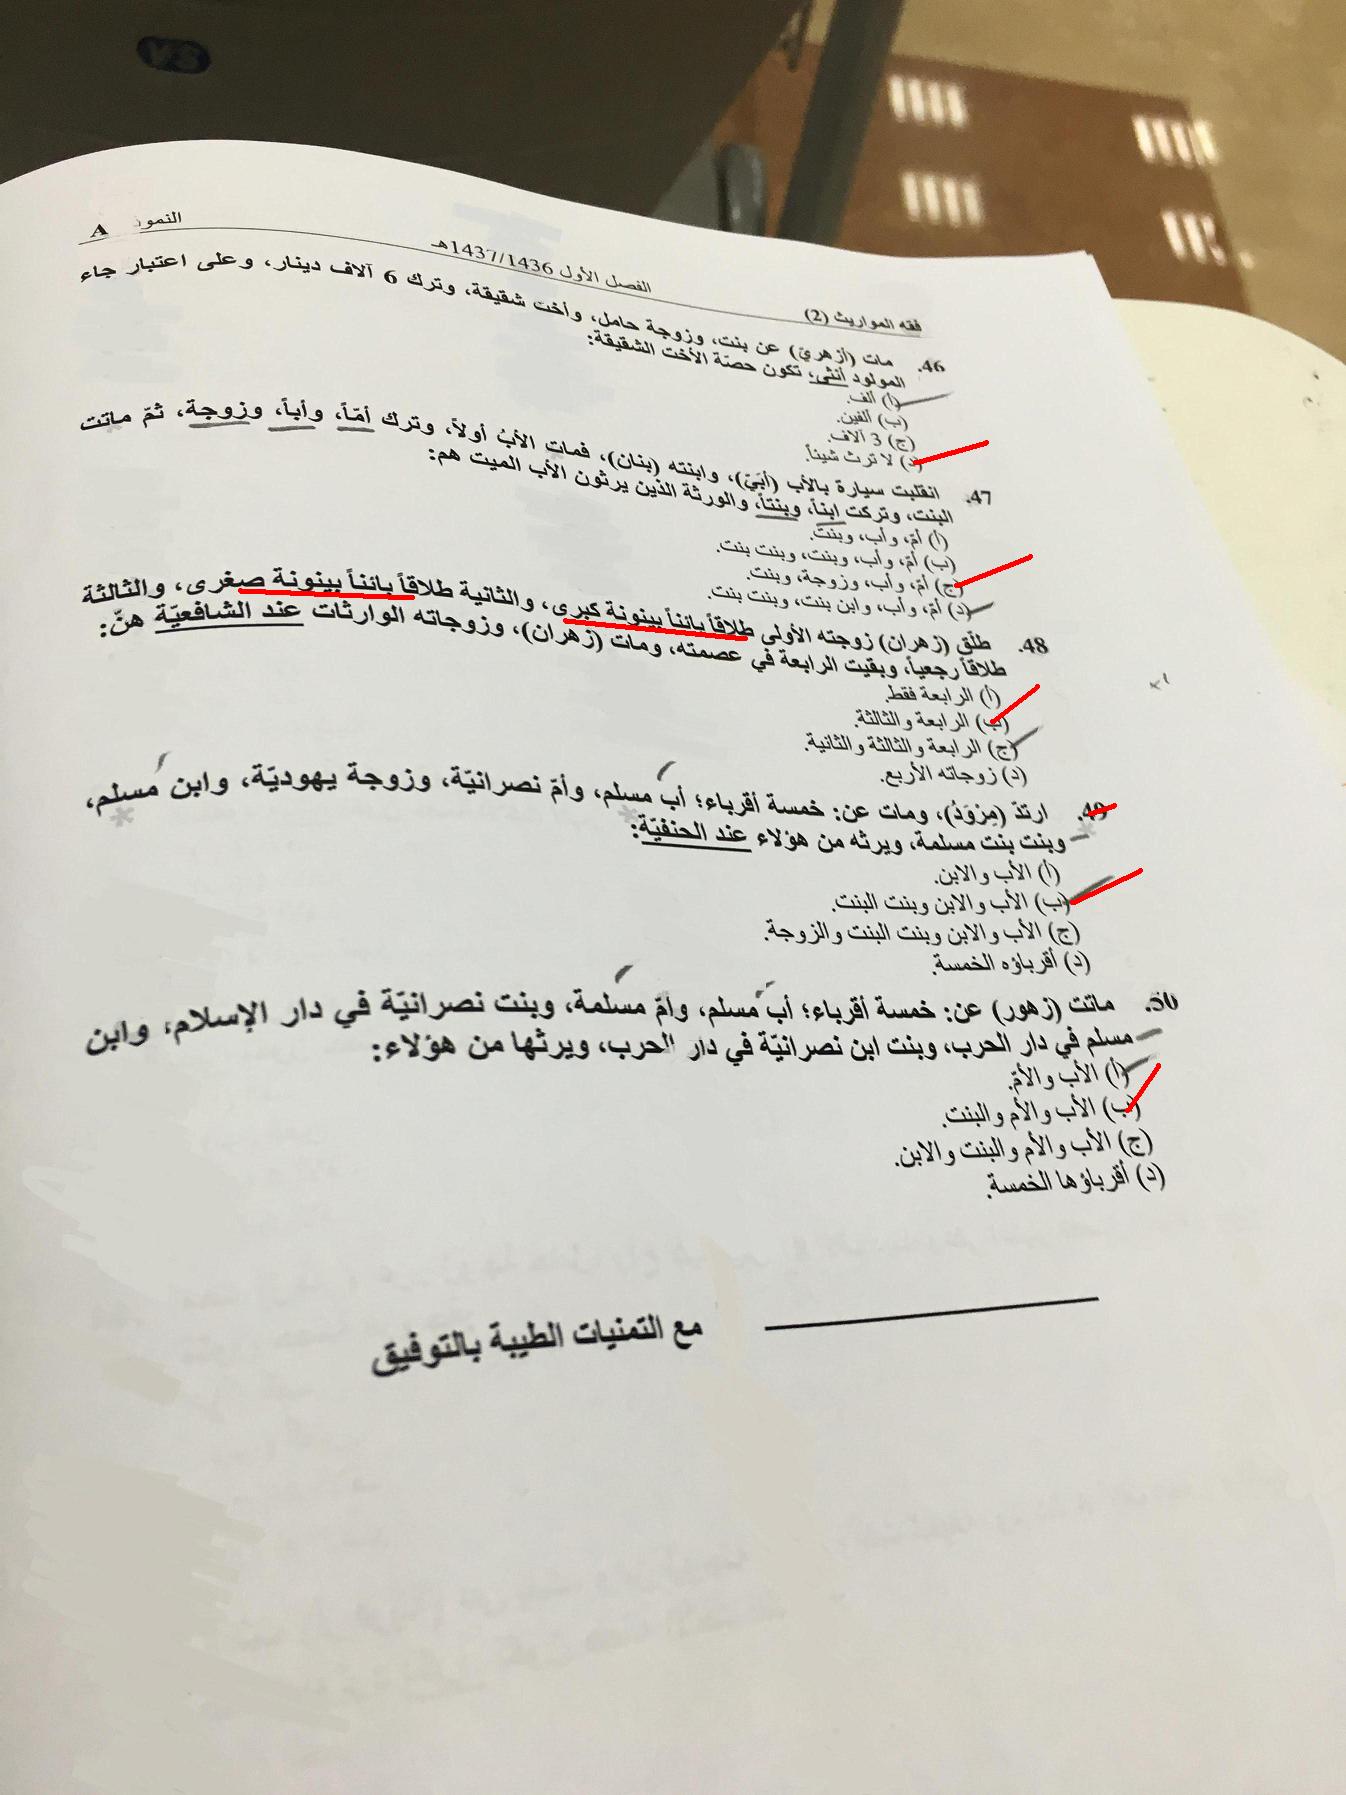 النموذ A
الفصل الأول 1437/1436هـ
فقه المواريث (2)
46. مات (أزهريّ) عن بنت، وزوجة حامل، وأخت شقيقة، وترك 6 آلاف دينار، وعلى اعتبار جاء
المولود أنثى، تكون حصّة الأخت الشقيقة:
(أ) ألف.
(ب) ألفين.
(ج) 3 آلاف.
(د) لا ترث شيئاً.
47. انقلبت سيارة بالأب (أُبَيّ)، وابنته (بنان)، فمات الأبُ أولاً، وترك أمّاً، وأباً، وزوجة، ثمّ ماتت
البنت، وتركت ابناً، وبنتاً، والورثة الذين يرثون الأب الميت هم:
(أ) أمّ، وأب، وبنت.
(ب) أمّ، وأب، وبنت، وبنت بنت.
(ج) أمّ، وأب، وزوجة، وبنت.
(د) أمّ، وأب، وابن بنت، وبنت بنت.
48. طلّق (زهران) زوجته الأولى طلاقاً بائناً بينونة كبرى، والثانية طلاقاً بائناً بينونة صغرى، والثالثة
طلاقاً رجعياً، وبقيت الرابعة في عصمته، ومات (زهران)، وزوجاته الوارثات عند الشافعيّة هنّ:
(أ) الرابعة فقط.
(ب) الرابعة والثالثة.
(ج) الرابعة والثالثة والثانية.
(د) زوجاته الأربع.
49. ارتدّ (مِزوَدُ)، ومات عن: خمسة أقرباء؛ أب مسلم، وأمّ نصرانيّة، وزوجة يهوديّة، وابن مسلم،
وبنت بنت مسلمة، ويرثه من هؤلاء عند الحنفيّة:
(أ) الأب والابن.
(ب) الأب والابن وبنت البنت.
(ج) الأب والابن وبنت البنت والزوجة.
(د) أقرباؤه الخمسة.
50. ماتت (زهور) عن: خمسة أقرباء؛ أب مسلم، وأمّ مسلمة، وبنت نصرانيّة في دار الإسلام، وابن
مسلم في دار الحرب، وبنت ابن نصرانيّة في دار الحرب، ويرثها من هؤلاء:
(أ) الأب والأمّ.
(ب) الأب والأم والبنت.
(ج) الأب والأم والبنت والابن.
(د) أقرباؤها الخمسة.
مع التمنيات الطيبة بالتوفيق